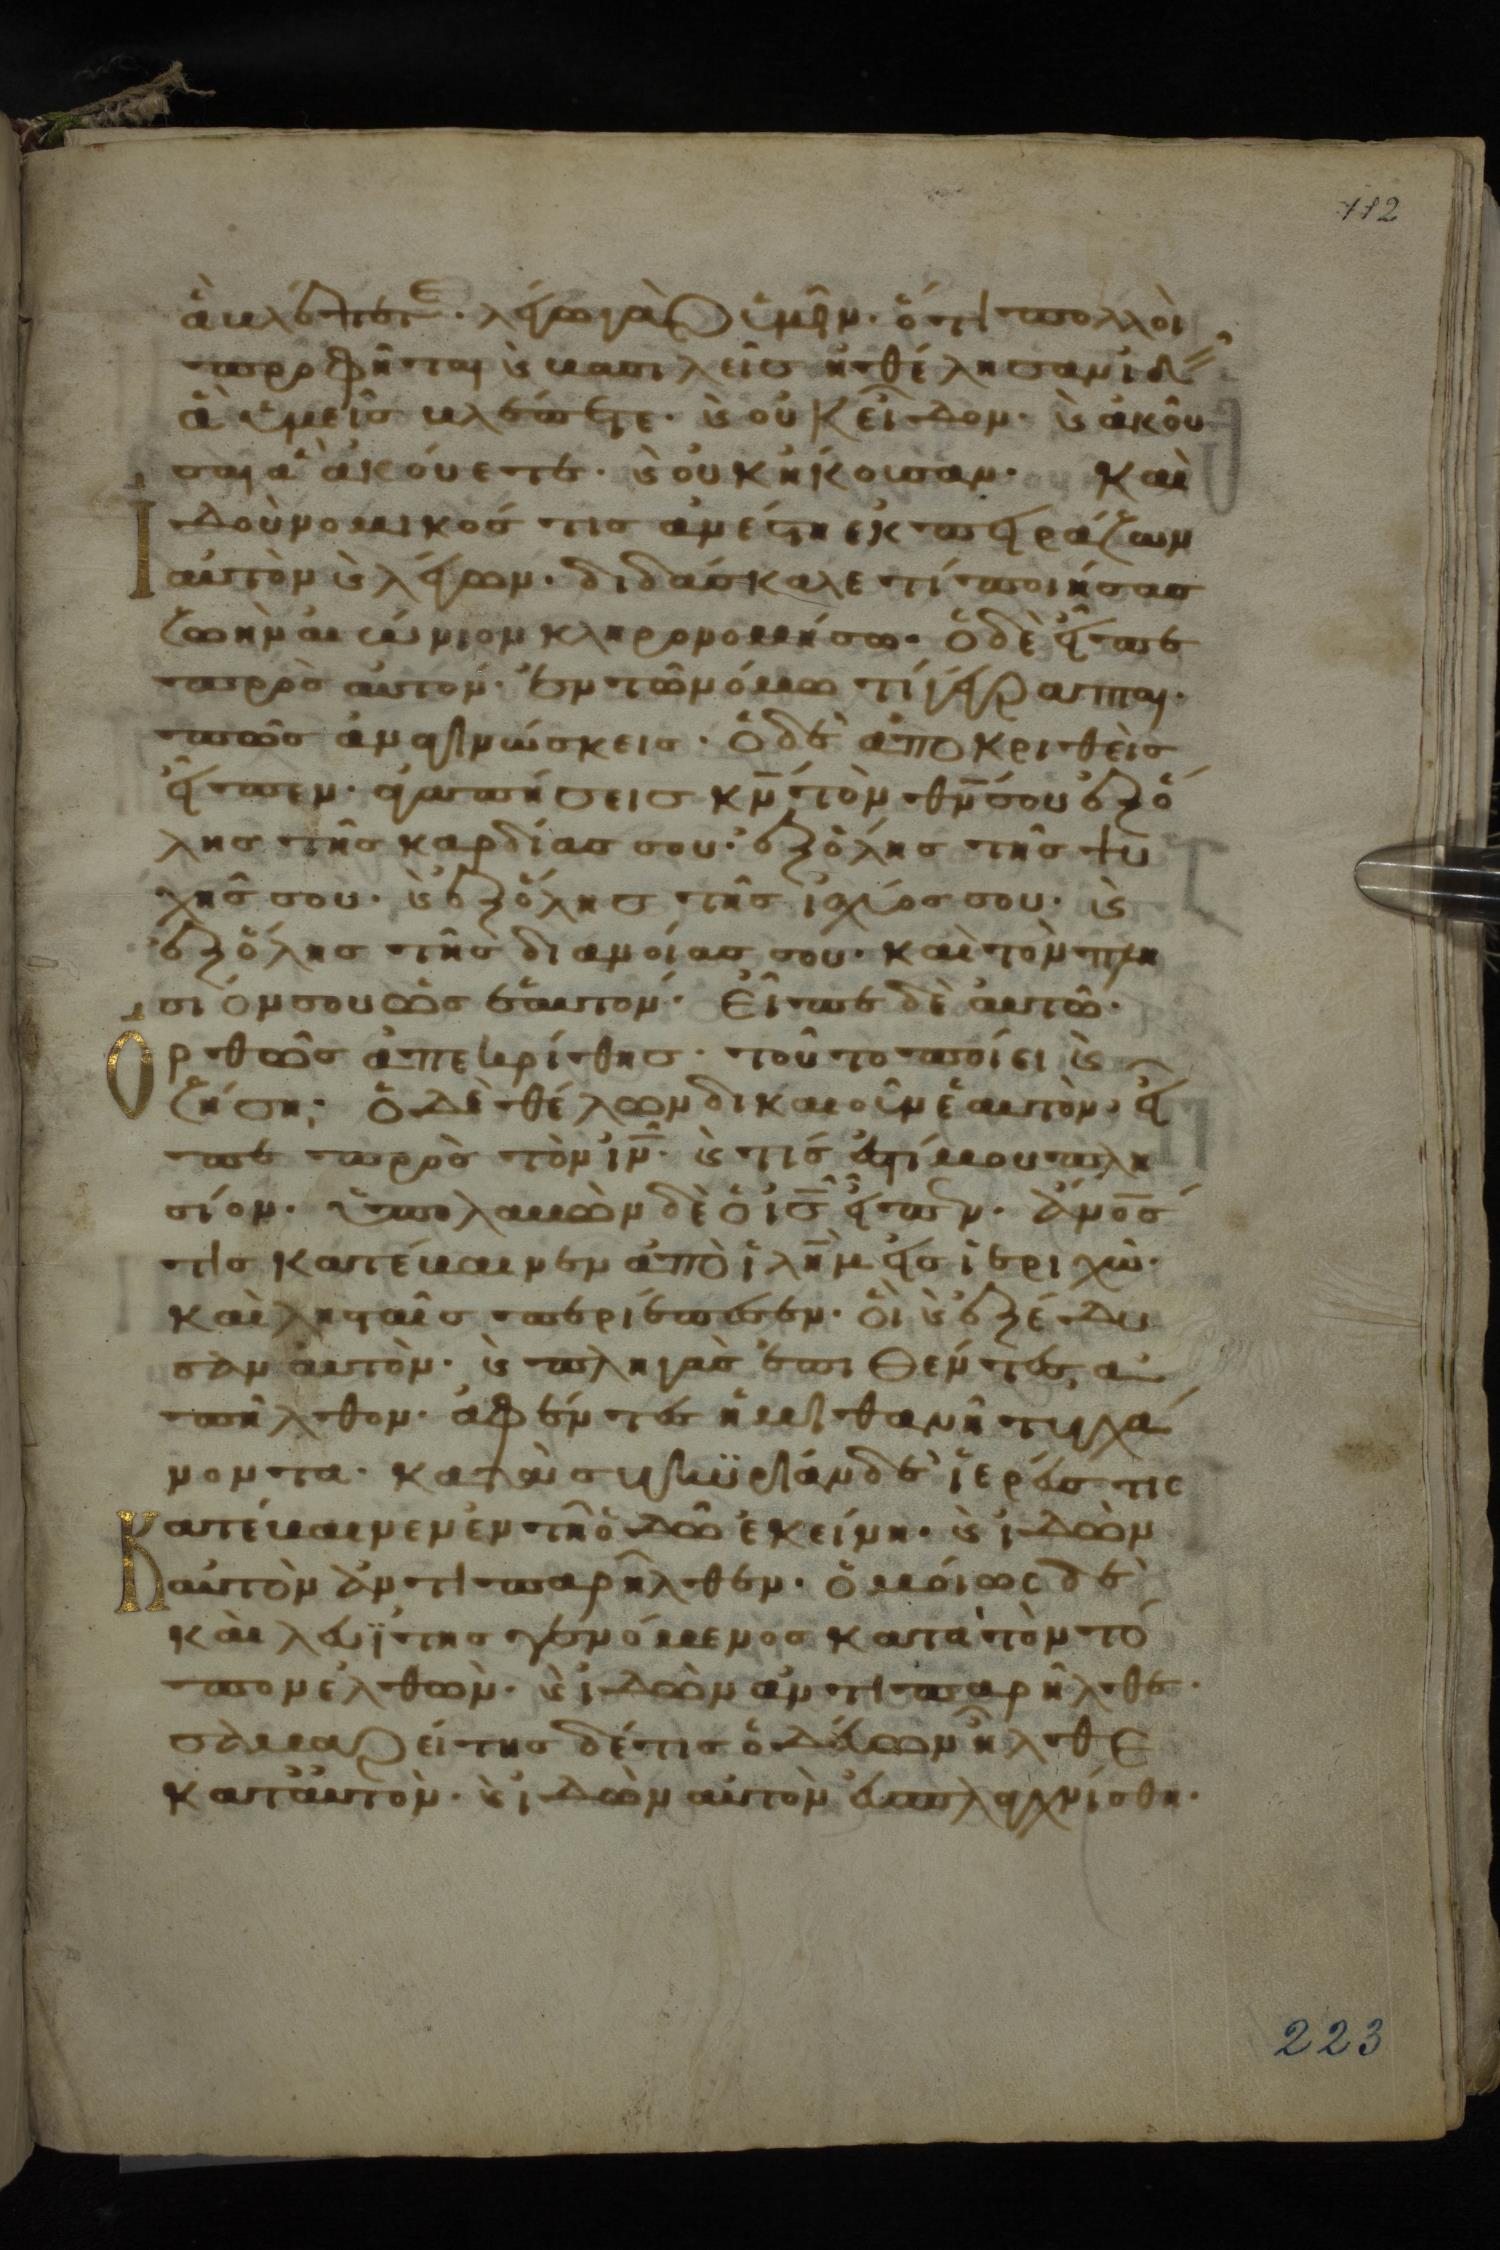 112
ἃ βλέπετε. λέγω γὰρ ὑμῖν. ὅτι πολλοὶ
προφῆται καὶ βασιλεῖς ἠθέλησαν ἰδεῖν
ἃ ὑμεῖς βλέπετε. καὶ οὐκ εἶδον. καὶ ἀκοῦ
σαι ἃ ἀκούετε. καὶ οὐκ ἤκουσαν. Καὶ
Ἰδοὺ νομικός τις ἀνέστη ἐκπειράζων
αὐτὸν καὶ λέγων. διδάσκαλε τί ποιήσας
ζωὴν αἰώνιον κληρονομήσω. ὁ δὲ εἶπε
πρὸς αὐτόν. ἐν τῶ νόμω τί γέγραπται.
πῶς ἀναγινώσκεις. ὁ δὲ ἀποκριθεὶς
εἶπεν. ἀγαπήσεις κ̅ν̅ τὸν θ̅ν̅ σου ἐξ ὅ
λης τῆς καρδίας σου. ἐξ ὅλης τῆς ψυ
χῆς σου. καὶ ἐξ ὅλης τῆς ἰσχύος σου. καὶ
ἐξ ὅλης τῆς διανοίας σου. καὶ τὸν πλη
σίον σου ὡς ἑαυτόν. Εἶπε δὲ αὐτῶ.
Ὀρθῶς ἀπεκρίθης. τοῦτο ποίει καὶ
ζήση. ὁ δὲ θέλων δικαιοῦν ἑαυτὸν. εἶ
πε πρὸς τὸν ι̅ν̅. καὶ τίς ἐστί μου πλη
σίον. ὑπολαβὼν δὲ ὁ ι̅ς̅ εἶπεν. ἄν̅ο̅ς̅
τις κατέβαινεν ἀπὸ ἱ̅λ̅η̅μ̅ εἰς ἱεριχώ.
καὶ λησταῖς περιέπεσεν. οἳ καὶ ἐξέδυ
σαν αὐτὸν. καὶ πληγὰς ἐπιθέντες, ἀ
πῆλθον. ἀφέντες ἡμιθανῆ τυγχά
νοντα. κατὰ συγκυρίαν δὲ ἱερεύς τις
Κατέβαινεν ἐν τῆ ὁδῶ ἐκείνη. καὶ ἰδὼν
αὐτὸν ἀντιπαρῆλθεν. ὁμοίως δὲ
καὶ λευΐτης γενόμενος κατὰ τὸν τό
πον ἐλθὼν. καὶ ἰδὼν ἀντιπαρῆλθε.
σαμαρείτης δέ τις ὁδεύων ἦλθε
κατ' αὐτὸν. καὶ ἰδὼν αὐτὸν ἐσπλαγχνίσθη.
223